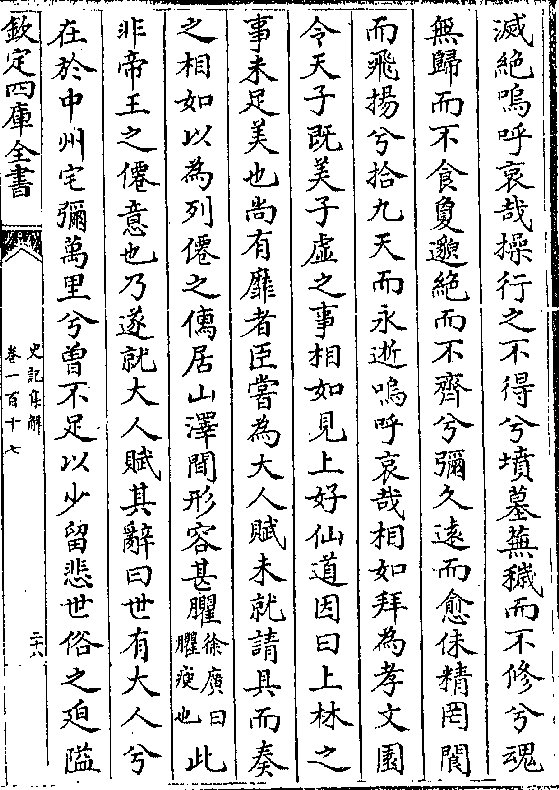 滅絶嗚呼哀哉操行之不得兮墳墓蕪穢而不修兮魂
無歸而不食敻邈絶而不齊兮彌久遠而愈佅精罔閬
而飛揚兮拾九天而永逝嗚呼哀哉相如拜為孝文園
令天子既美子虛之事相如見上好仙道因曰上林之
事未足美也尚有靡者臣嘗為大人賦未就請具而奏
之相如以為列僊之儁居山澤間形容甚臞徐廣曰臞瘦也此
非帝王之僊意也乃遂就大人賦其辭曰世有大人兮
在於中州宅彌萬里兮曾不足以少留悲世俗之廹隘
欽定四庫全書
史記集解
卷一百十七
二十八